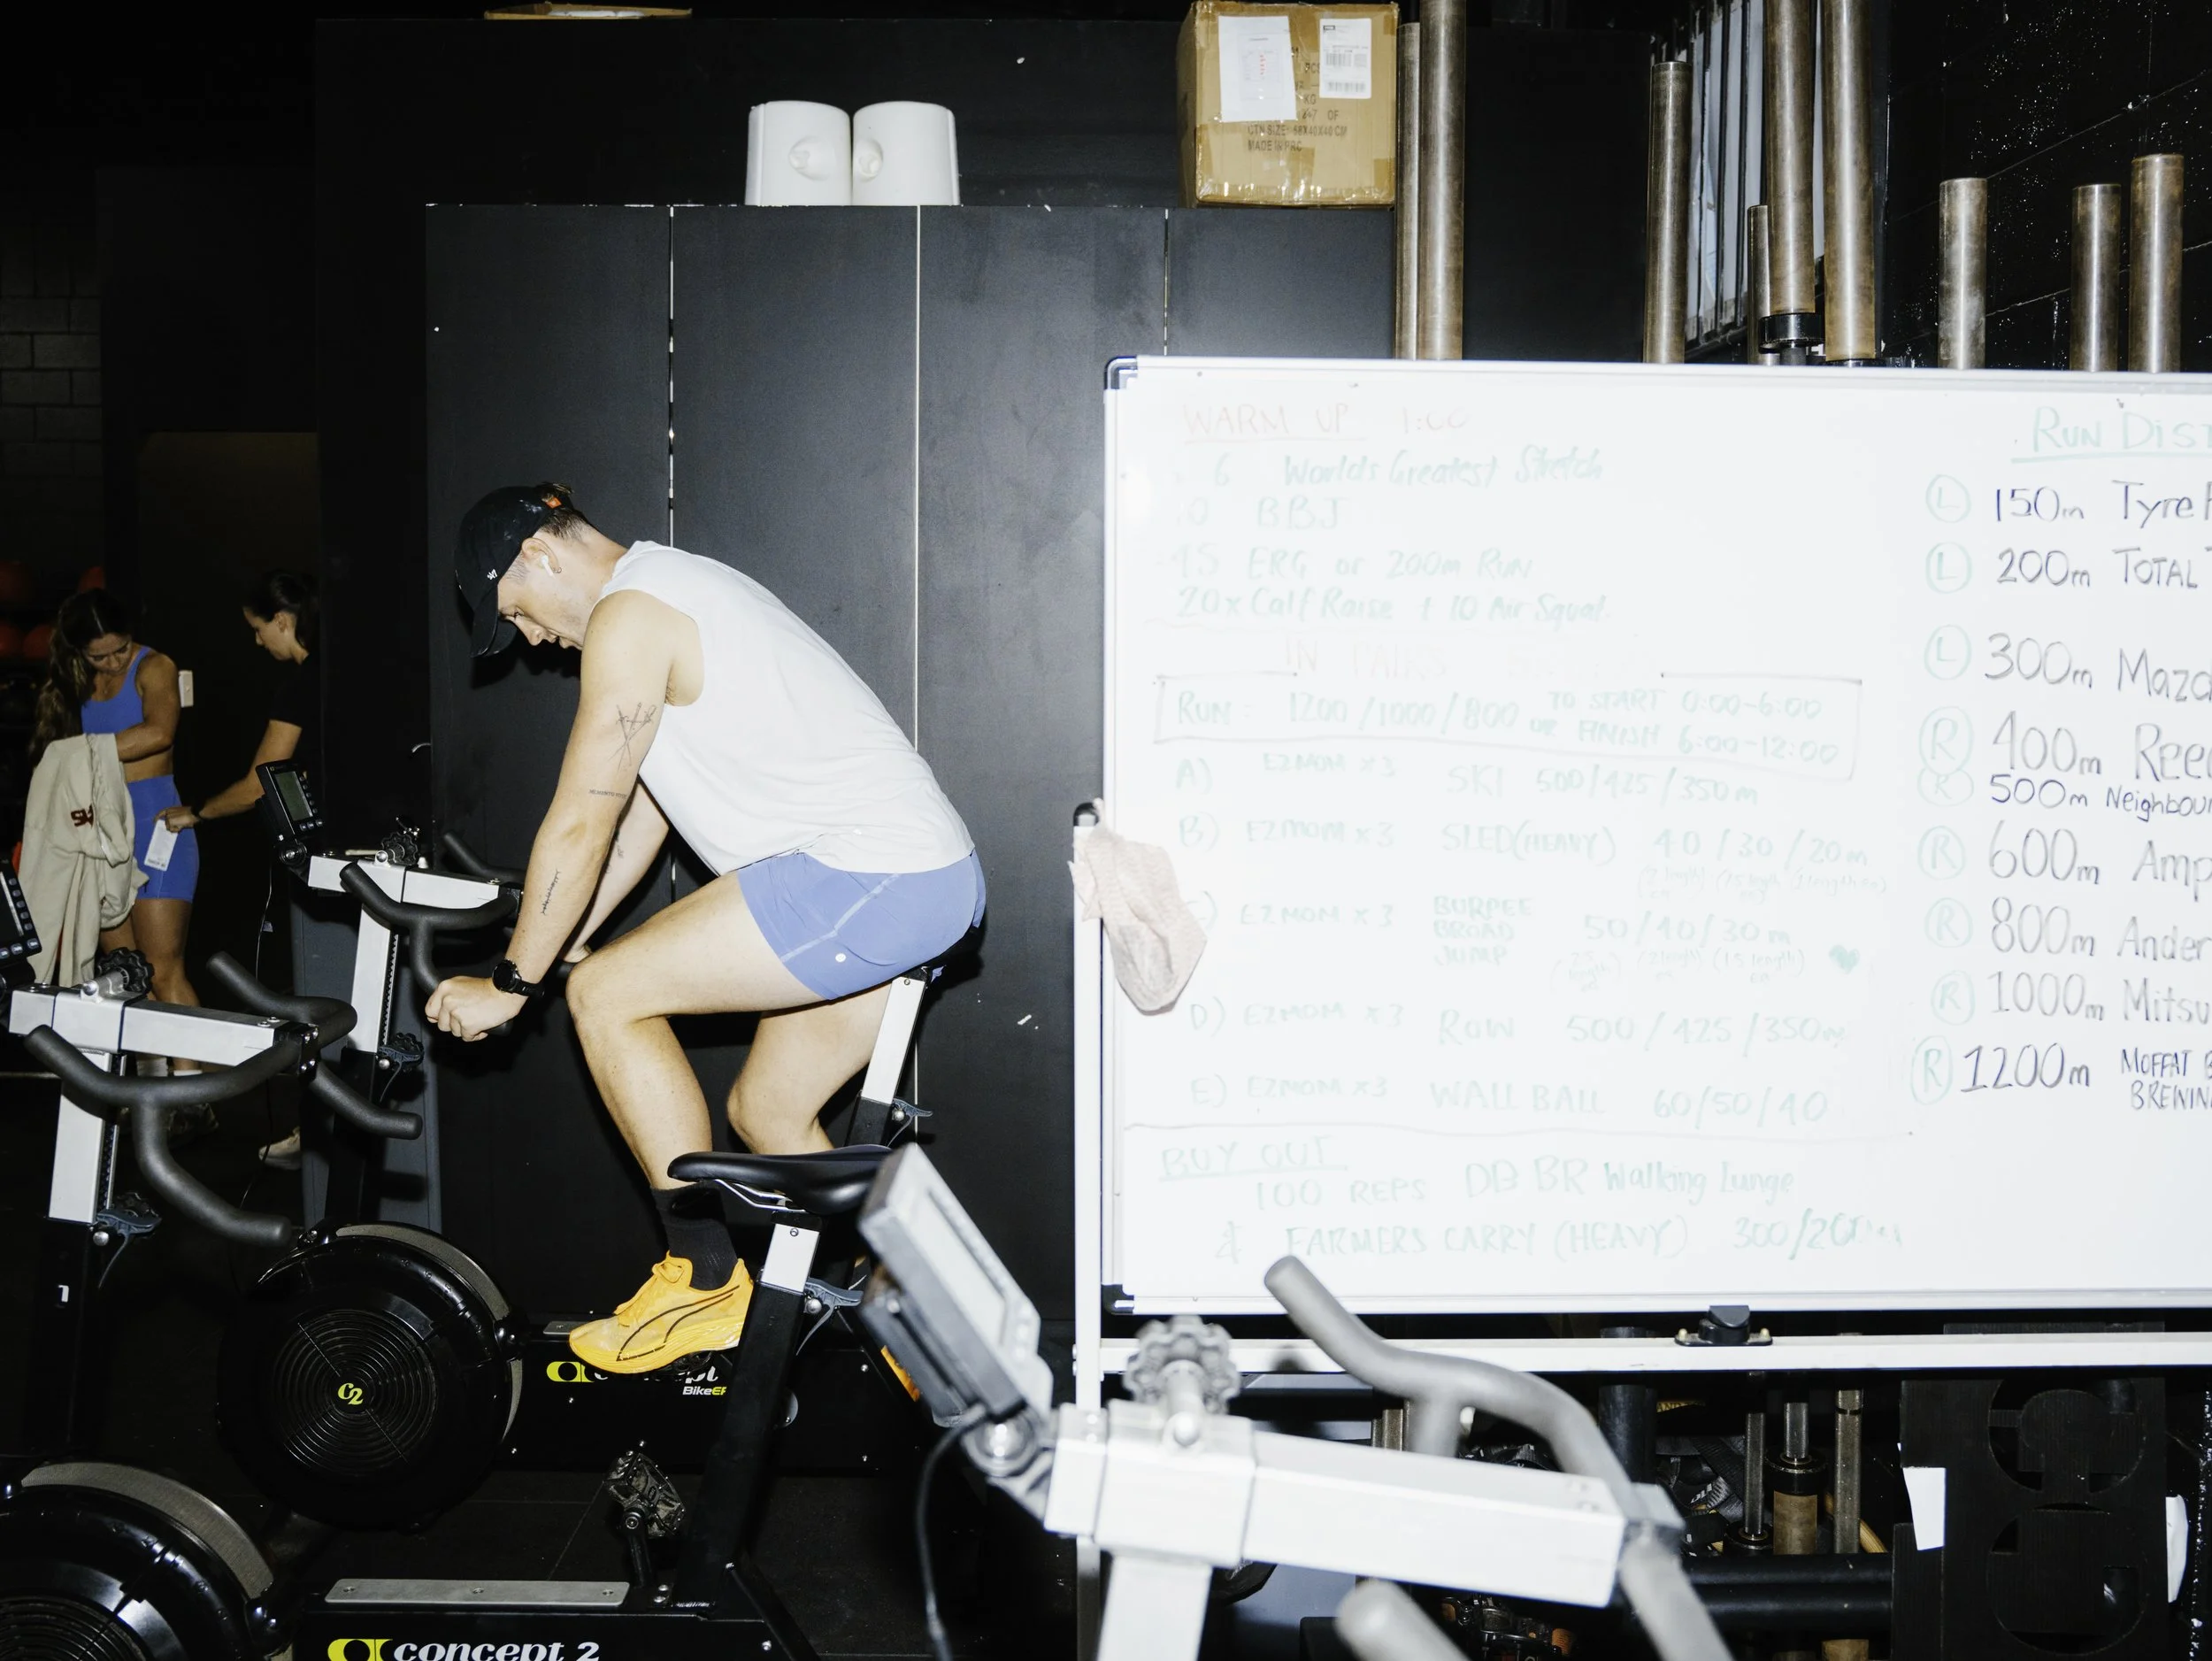 KG
OF
CTN SIZE: 68X40X40CM
MADE IN PRC
WARM UP
6 Worlds Greatest Stretch
BBJ
ERG or 200m Run
20x Calf Raise + 10 Air Squat
IN PAIRS
RUN: 1200/1000/800 TO START 0:00-6:00
OR FINISH 6:00-12:00
A) E2MOM x3 SKI 500/425/350m
B) E2MOM x3 SLED(HEAVY) 40/30/20m
E2MOM x3 BURPEE
BROAD
JUMP
50/40/30m
D) E2MOM x3 ROW 500/425/350m
E) E2MOM x3 WALL BALL 60/50/40
BUY OUT
100 REPS DB BR Walking Lunge
& FARMERS CARRY (HEAVY) 300/200m
RUN DIST
L 150m Tyre
L 200m TOTAL
L 300m Mazd
R 400m Ree
R 500m Neighbou
R 600m Amp
R 800m Ander
R 1000m Mitsu
R 1200m MOFFAT B
BREWIN
'47
1
C2
concept
BikeEr
concept 2